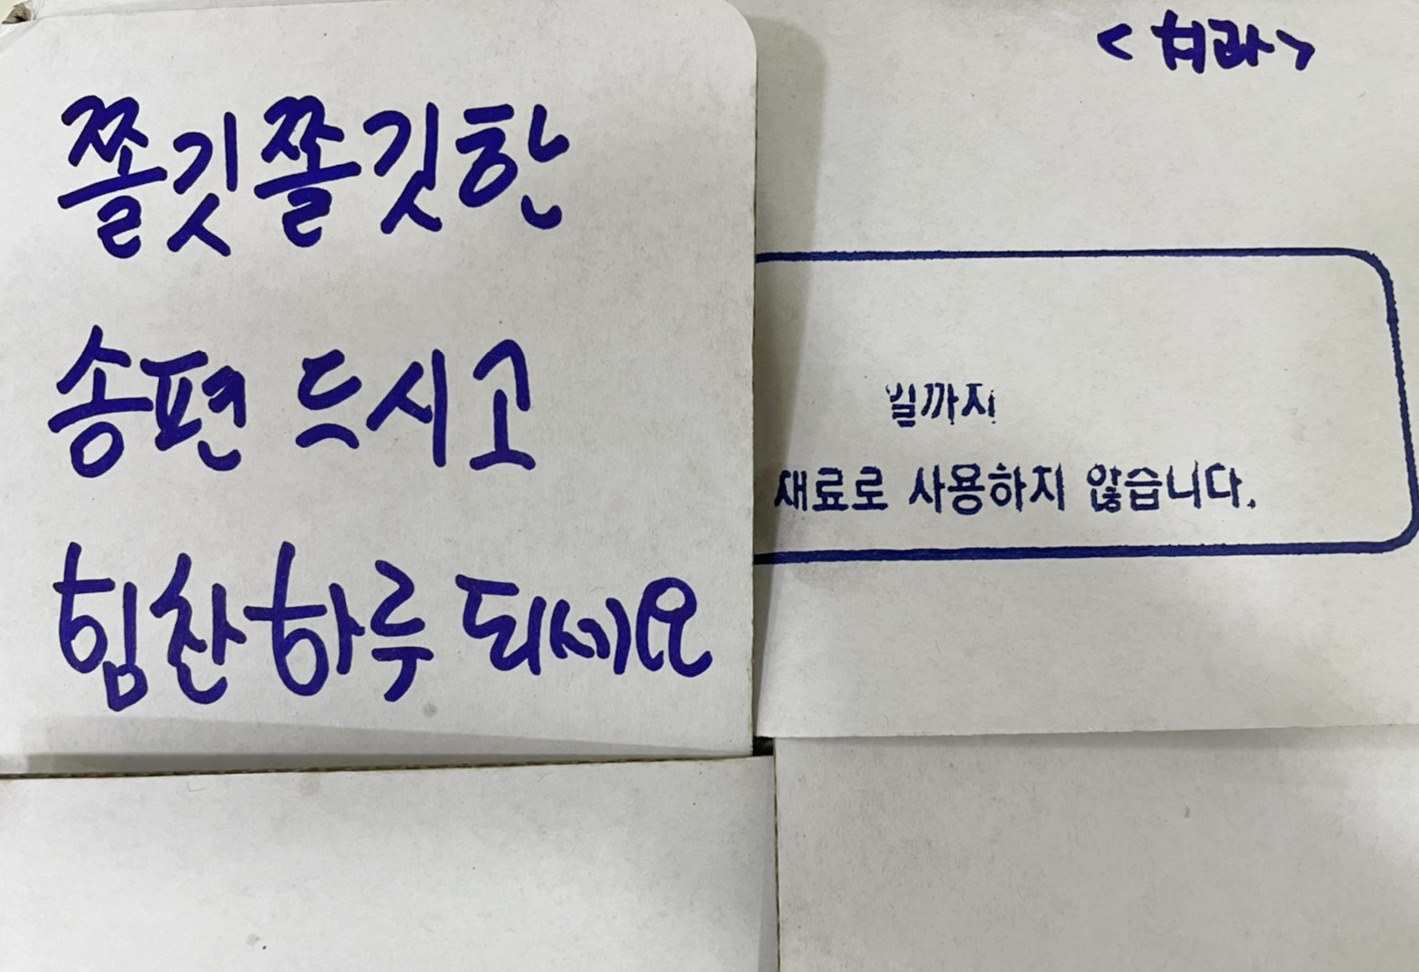 쫄깃쫄깃한
송편 드시고
힘찬 하루 되세요
<치과>
일까지
재료로 사용하지 않습니다.